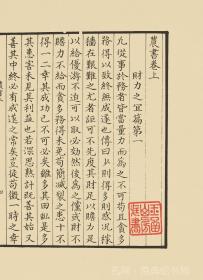 農書卷上
財力之宜篇第一
凡從事於務者皆當量力而為之不可苟且貪多
務得以致終無成遂也傳曰少則得多則惑況稼
穡在艱難之尤者詎可不先度其財足以贍力足
以給優游不迫可以取必效然後為之儻或財不
贍力不給而貪多務得未免苟簡滅裂之患十不
得一二幸其成功已不可必矣雖多其田畝是多
其患害未見其利益也若深思熟計既善其始又
善其中終必有成遂之常矣豈徒苟徼一時之幸